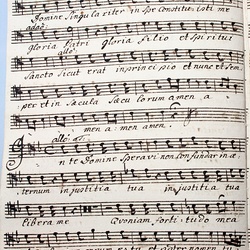 Domine Singulariter in Spe Constituisti me
adag:
Gloria Patri gloria filio et Spiritui
allo:
Sancto Sicut erat in principio et nunc et Sem
per et in Sæcula Sæculorum amen a
men a: men amen.
allo:
n te Domine Speravi non confundar in æ
ternum in justitia tua in justitia tua
libera me Quoniam forti: tudo mea